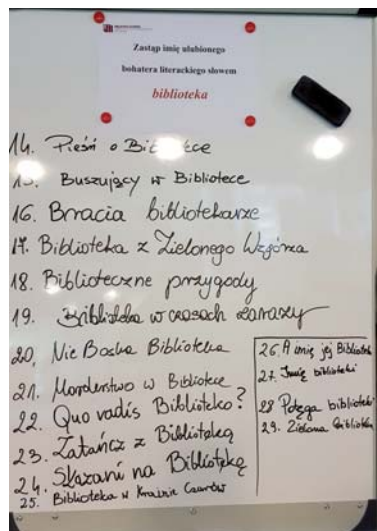 Zastąp imię ulubionego
bohatera literackiego słowem
biblioteka
14. Pieśń o Bibliotece
15. Buszujący w Bibliotece
16. Bracia bibliotekarze
17. Biblioteka z Zielonego Wzgórza
18. Biblioteczne przygody
19. Biblioteka w czasach zarazy
20. Nie Boska Biblioteka
21. Morderstwo w Bibliotece
22. Quo vadis Biblioteko?
23. Zatańcz z Biblioteką
24. Skazani na Bibliotekę
25. Biblioteka w Krainie Czarów
26. A imię jej Biblioteka
27. Imię biblioteki
28 Potęga biblioteki
29. Zielona biblioteka